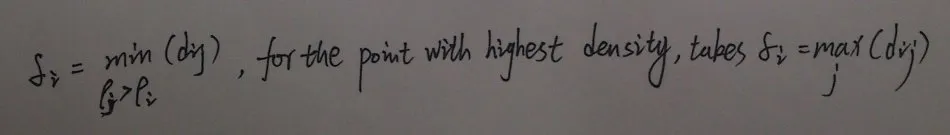 δᵢ = min (dᵢⱼ), for the point with highest density, takes δᵢ = max (dᵢⱼ)
ρⱼ>ρᵢ j